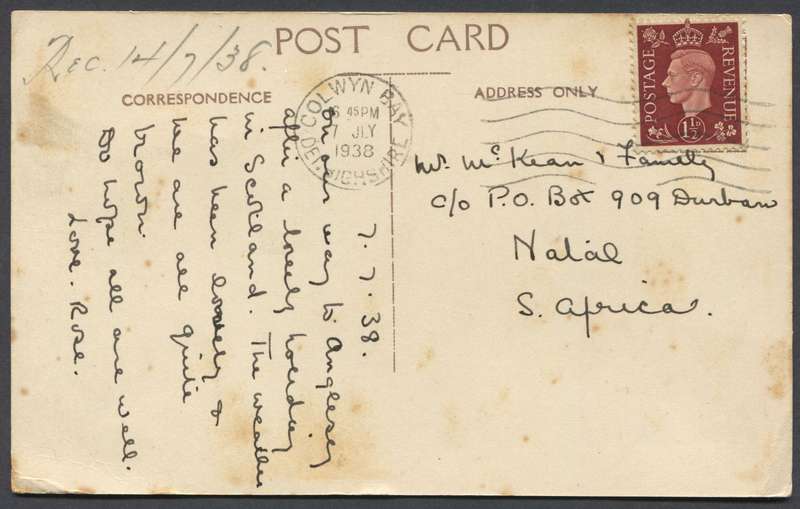 Rec. 14/7/38.
POST CARD
CORRESPONDENCE
ADDRESS ONLY
COLWYN BAY
6 45 PM
7 JLY
1938
DENBIGHSHIRE
POSTAGE
REVENUE
1½D
7.7.38.
on our way to Anglesey
after a lovely holiday
in Scotland. The weather
has been lovely &
we are all quite
brown.
Do hope all are well.
Love. Rose.
Mr. McKean & Family
c/o P.O. Box 909 Durban
Natal
S. Africa.